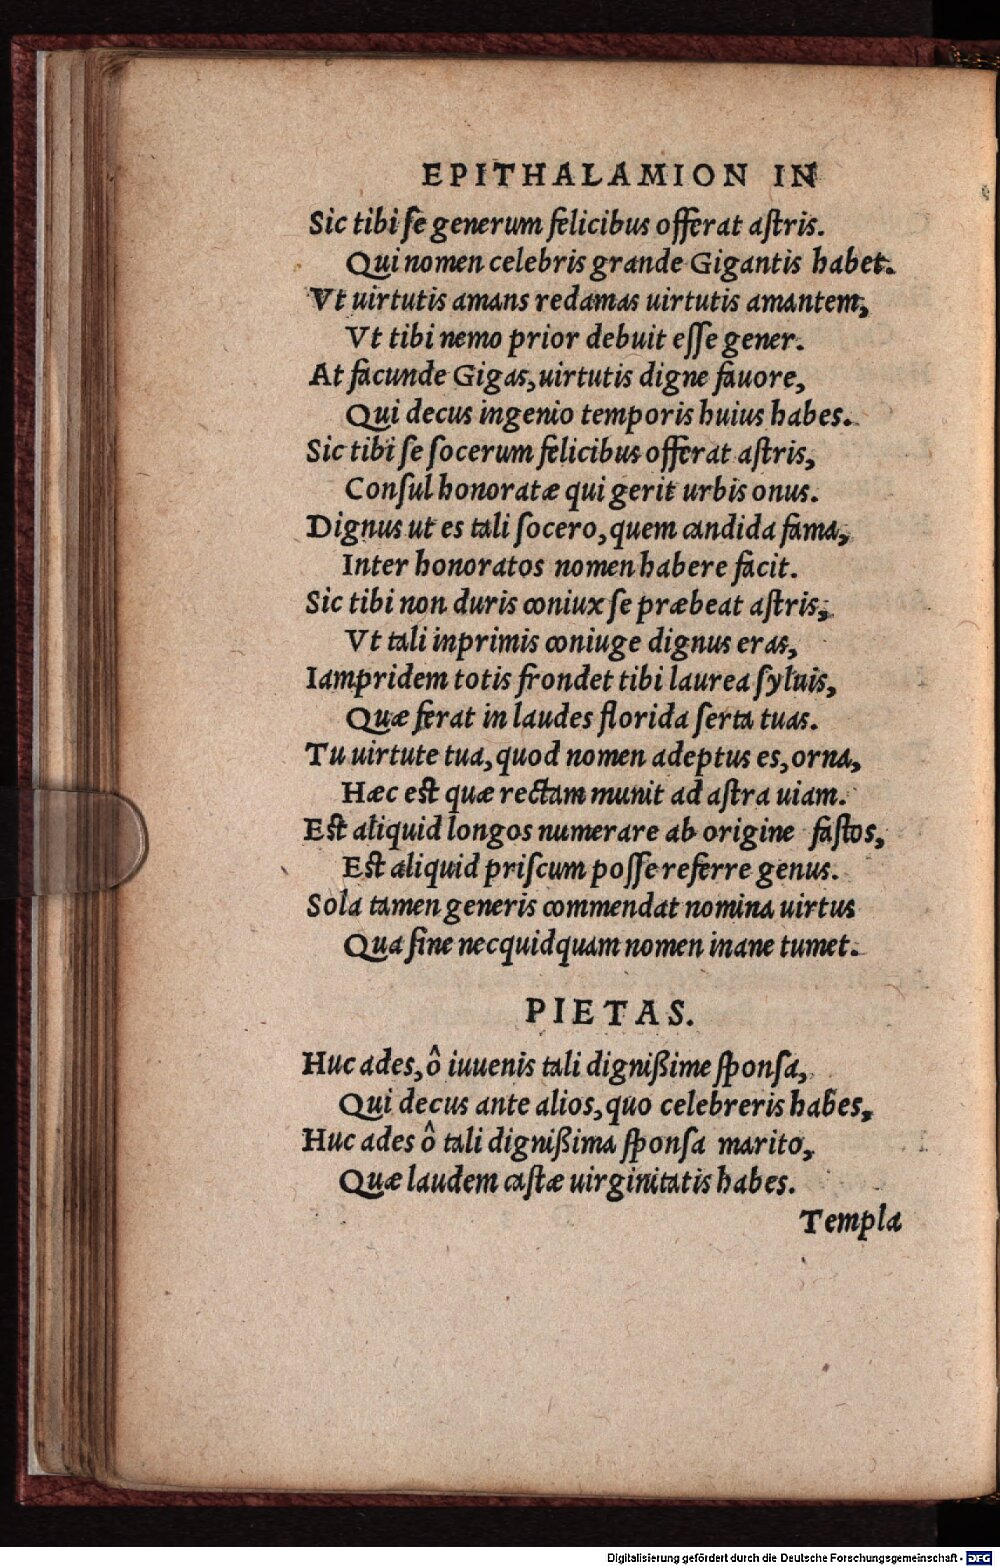 EPITHALAMION IN
Sic tibi ſe generum felicibus offerat aſtris.
Qui nomen celebris grande Gigantis habet.
Vt uirtutis amans redamas uirtutis amantem,
Vt tibi nemo prior debuit eſſe gener.
At facunde Gigas, uirtutis digne fauore,
Qui decus ingenio temporis huius habes.
Sic tibi ſe ſocerum felicibus offerat aſtris,
Conſul honoratæ qui gerit urbis onus.
Dignus ut es tali ſocero, quem candida fama,
Inter honoratos nomen habere facit.
Sic tibi non duris coniux ſe præbeat aſtris,
Vt tali inprimis coniuge dignus eras,
Iampridem totis frondet tibi laurea ſyluis,
Quæ ferat in laudes florida ſerta tuas.
Tu uirtute tua, quod nomen adeptus es, orna,
Hæc eſt quæ rectam munit ad aſtra uiam.
Eſt aliquid longos numerare ab origine faſtos,
Eſt aliquid priſcum poſſe referre genus.
Sola tamen generis commendat nomina uirtus
Qua ſine necquidquam nomen inane tumet.
PIETAS.
Huc ades, ô iuuenis tali digniſſime ſponſa,
Qui decus ante alios, quo celebreris habes,
Huc ades ô tali digniſſima ſponſa marito,
Quæ laudem caſtæ uirginitatis habes.
Templa
Digitalisierung gefördert durch die Deutsche Forschungsgemeinschaft - DFG